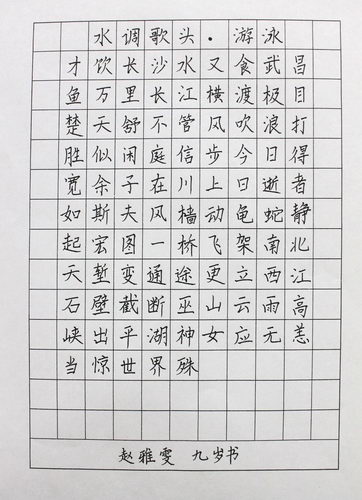 水调歌头·游泳
才饮长沙水又食武昌
鱼万里长江横渡极目
楚天舒不管风吹浪打
胜似闲庭信步今日得
宽余子在川上曰逝者
如斯夫风樯动龟蛇静
起宏图一桥飞架南北
天堑变通途更立西江
石壁截断巫山云雨高
峡出平湖神女应无恙
当惊世界殊
赵雅雯 九岁书